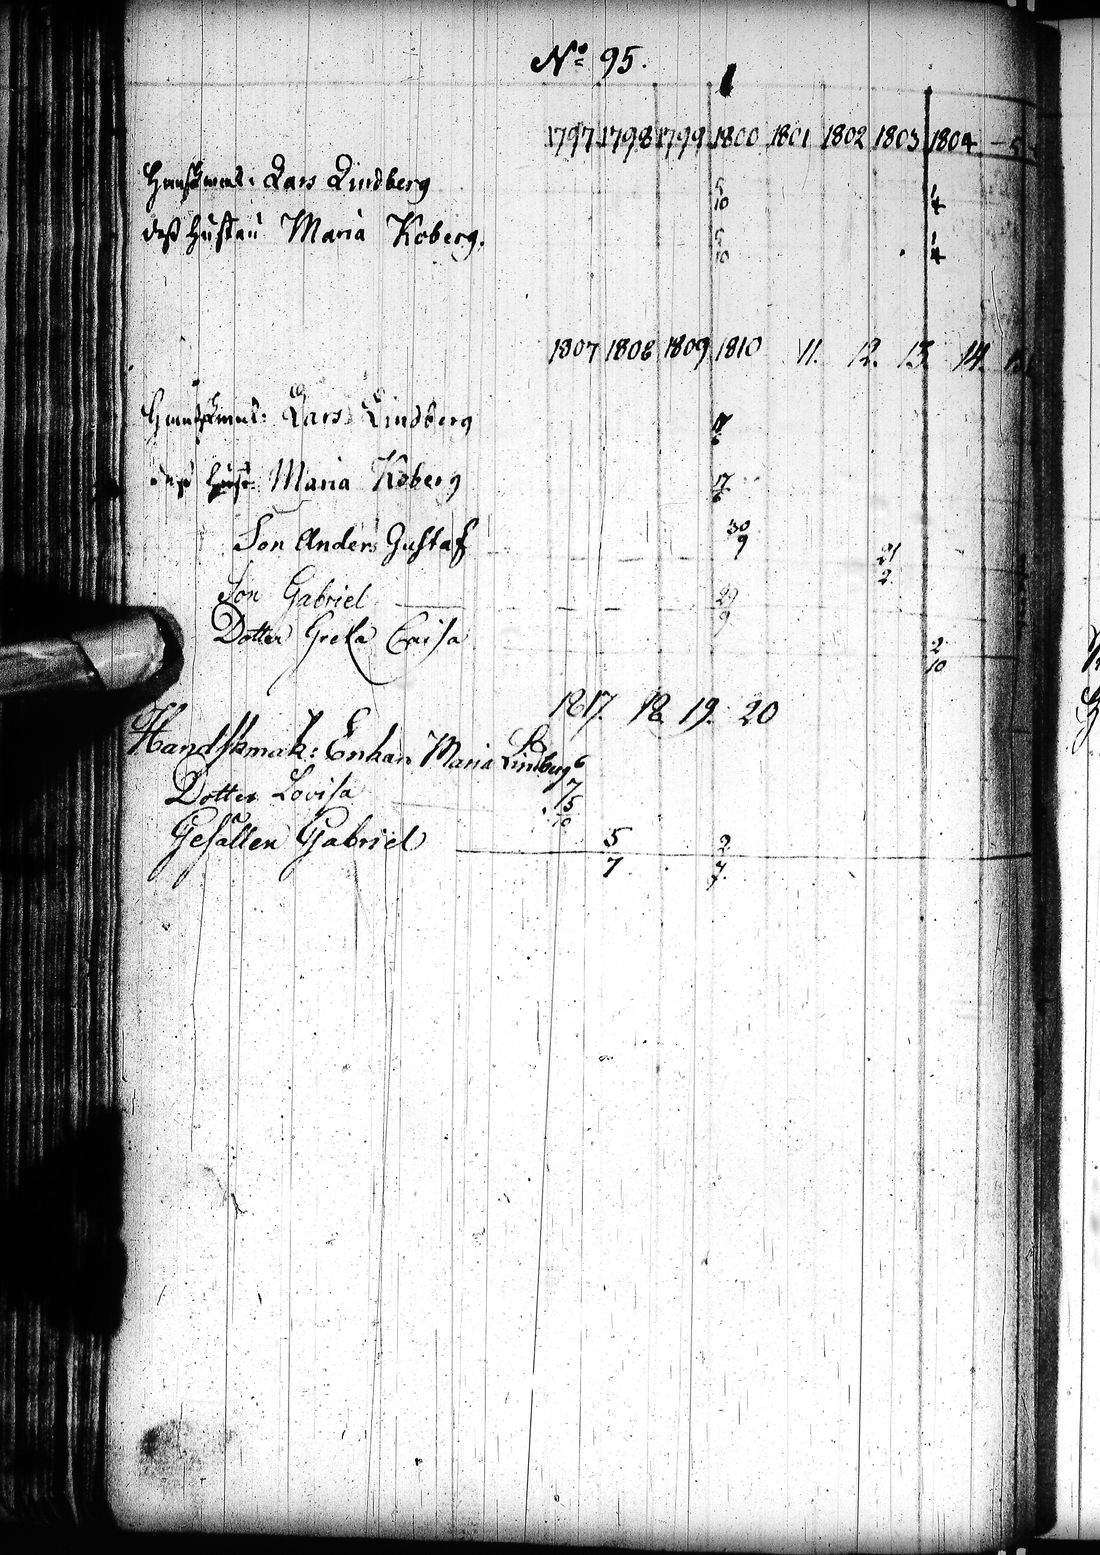 No 95.
1797 1798 1799 1800 1801 1802 1803 1804 - 5
Handskmak: Lars Lindberg 5/10 1/4
dess Hustru Maria Koberg. 5/10 1/4
1807 1808 1809 1810 11. 12. 13. 14.
Handskmak: Lars Lindberg 17/6
dess Hust: Maria Koberg 17/6
Son Anders Gustaf 30/9 21/2
Son Gabriel 29/9
Dotter Greta Caisa 2/10
1817. 18. 19. 20
Handskmak: Enkan Maria Lindberg 6/7
Dotter Lovisa 15/10
Gesällen Gabriel 5/7 2/7.